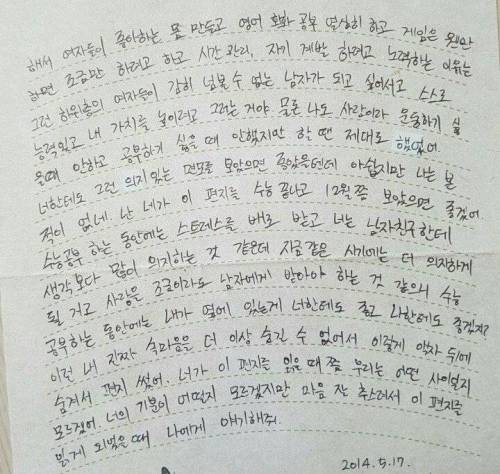 해서 여자들이 좋아하는 몸 만들고 영어 회화 공부 열심히 하고 게임은 웬만
하면 조금만 하려고 하고 시간 관리, 자기 계발 하려고 노력하는 이유는
그런 하위층의 여자들이 감히 넘볼 수 없는 남자가 되고 싶어서고 스스로
능력있고 내 가치를 높이려고 그러는거야 물론 나도 사람이라 운동하기 싫
을때 안하고 공부하기 싫을 때 안했지만 할 땐 제대로 했었어.
너한테도 그런 의지있는 면모를 보았으면 좋았을텐데 아쉽지만 나는 본
적이 없네 난 네가 이 편지를 수능 끝나고 12월쯤 보았으면 좋겠어
수능공부 하는 동안에는 스트레스를 배로 받고 너는 남자친구한테
생각보다 많이 의지하는 것 같은데 지금같은 시기에는 더 의지하게
될 거고 사랑을 조금이라도 남자에게 받아야 하는 것 같으니 수능
공부하는 동안에는 내가 옆에 있는게 너한테도 좋고 나한테도 좋겠지?
이런 내 진짜 속마음을 더 이상 숨길 수 없어서 이렇게 액자 뒤에
숨겨서 편지 썼어. 너가 이 편지를 읽을 때쯤 우리는 어떤 사이일지
모르겠어 너의 기분이 어떨지 모르겠지만 마음 잘 추스려서 이 편지를
읽게 되었을때 나에게 얘기해줘.
2014.5.17.